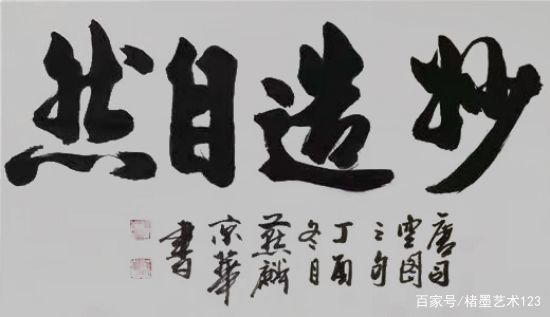 妙造自然
唐司
空图
之句
丁酉
冬月
燕麟
京華
書
百家号/楮墨艺术123